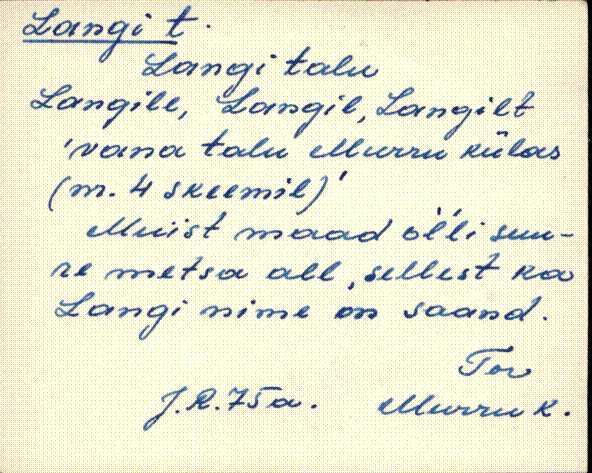 Langi t.
Langi talu
Langile, Langil, Langilt
'vana talu Murru külas
(nr. 4 skeemil)'
Muist maad ol̀li suu-
re metsa all, sellest ka
Langi nime on saand.
Tor
J.R. 75 a. Murru k.